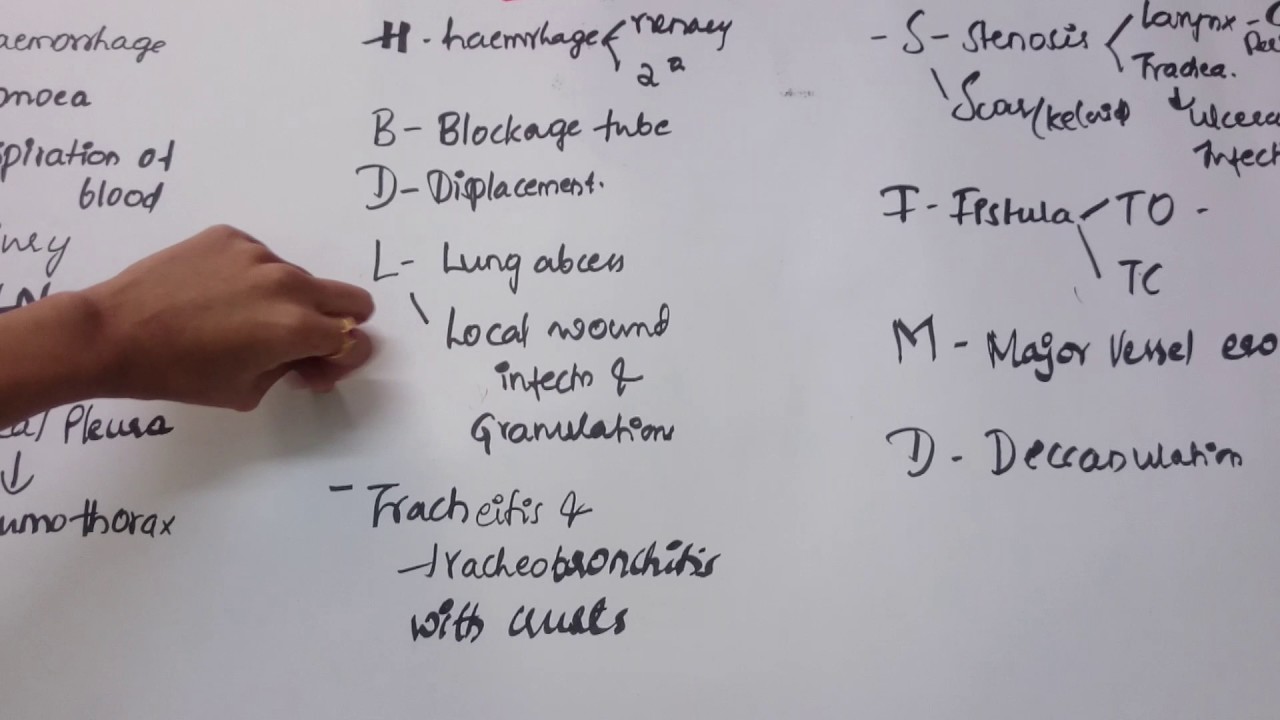 aemorrhage
onoea
piration of
blood
ury
al Pleura
↓
umothorax
H - haemrhage
2ª
B - Blockage tube
D - Displacement.
L - Lung abcess
Local wound
infectn &
Granulation
- Tracheitis &
tracheobronchitis
with crusts
- S - Stenosis Larynx -
Trachea.
Scar/keloid ↓ ulcera
Infect
F - Fistula TO -
TC
M - Major Vessel ero
D - Deccanulation